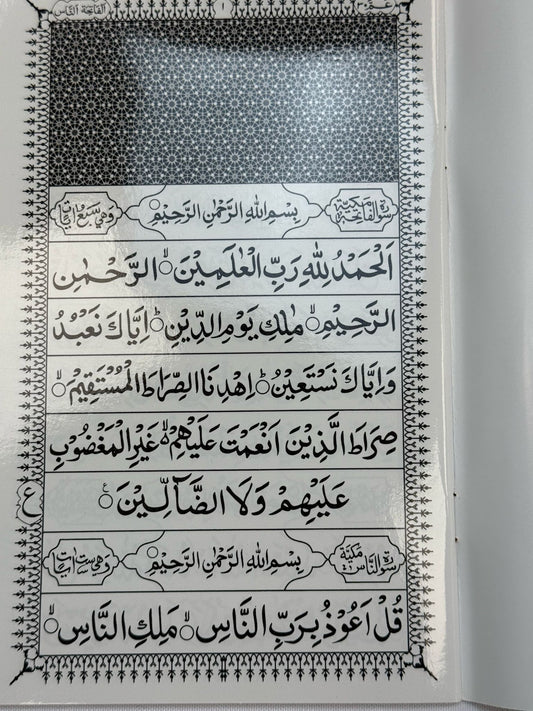 الفاتحة ١ الناس
سورة الفاتحة مكية بِسْمِ اللهِ الرَّحْمٰنِ الرَّحِيْمِ وهي سبع اٰيات
اَلْحَمْدُ لِلّٰهِ رَبِّ الْعٰلَمِيْنَ ۙ الرَّحْمٰنِ
الرَّحِيْمِ ۙ مٰلِكِ يَوْمِ الدِّيْنِ ؕ اِيَّاكَ نَعْبُدُ
وَاِيَّاكَ نَسْتَعِيْنُ ؕ اِهْدِنَا الصِّرَاطَ الْمُسْتَقِيْمَ ۙ
صِرَاطَ الَّذِيْنَ اَنْعَمْتَ عَلَيْهِمْ ۙ غَيْرِ الْمَغْضُوْبِ
عَلَيْهِمْ وَلَا الضَّآلِّيْنَ ۠
ع
سورة الناس مكية بِسْمِ اللهِ الرَّحْمٰنِ الرَّحِيْمِ وهي ست اٰيات
قُلْ اَعُوْذُ بِرَبِّ النَّاسِ ۙ مَلِكِ النَّاسِ ۙ